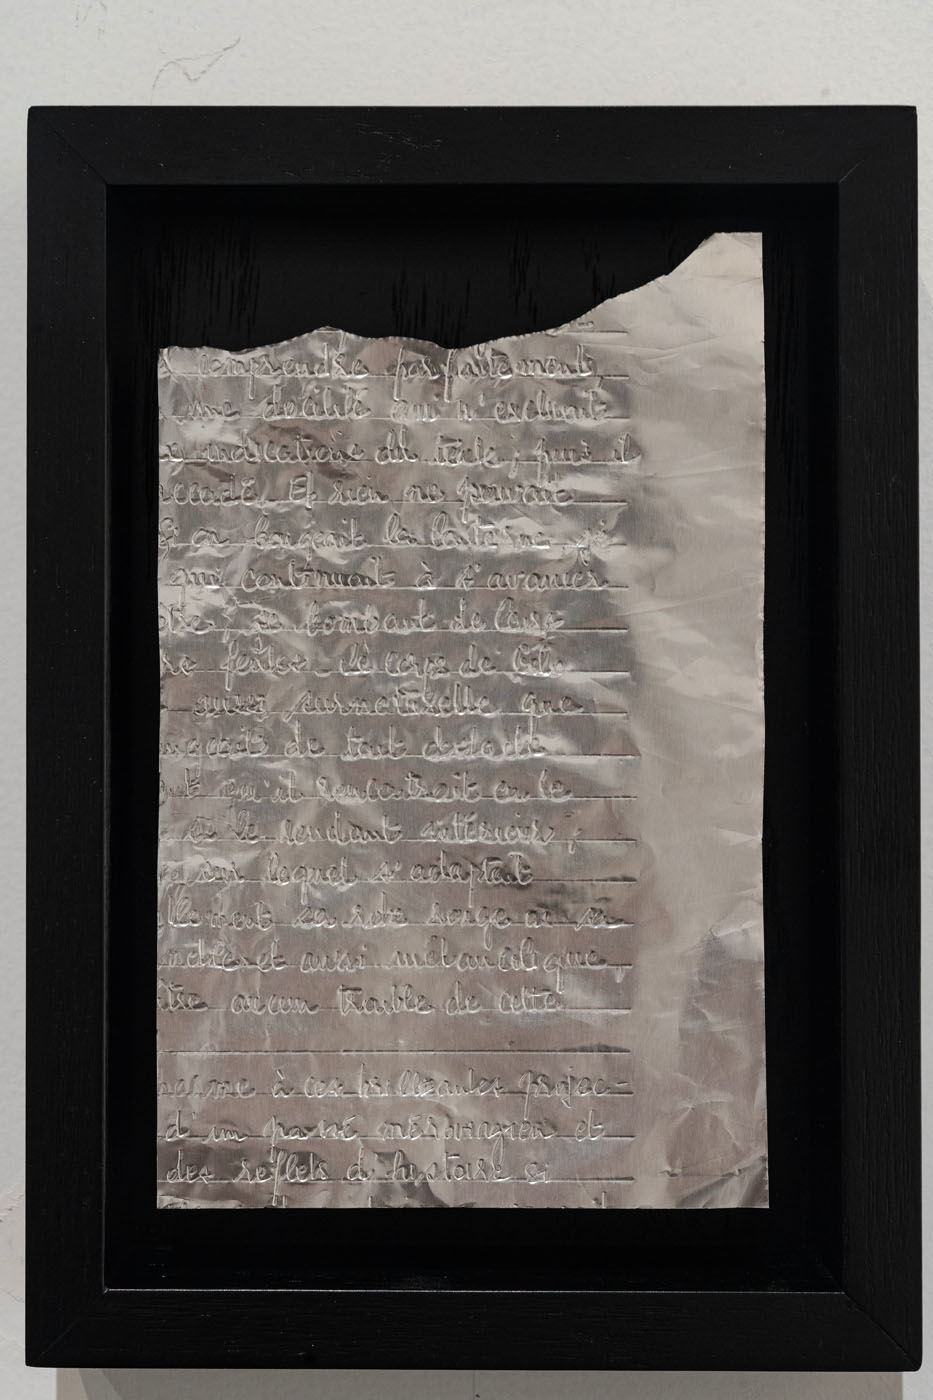 comprendre parfaitement
une docilité qui n'excluait
indications du texte ; puis il
saccadé. Et rien ne pouvait
Si on bougeait la lanterne, je
qui continuait à s'avancer
se bombant de leurs
fentes. Le corps de Golo
surnaturelle que
de tout obstacle
qu'il rencontrait en le
le rendant intérieur,
sur lequel s'adaptait
sa robe rouge ou sa
noble et aussi mélancolique,
aucun trouble de cette
charme à ces brillantes projec-
d'un passé mérovingien et
des reflets d'histoire si